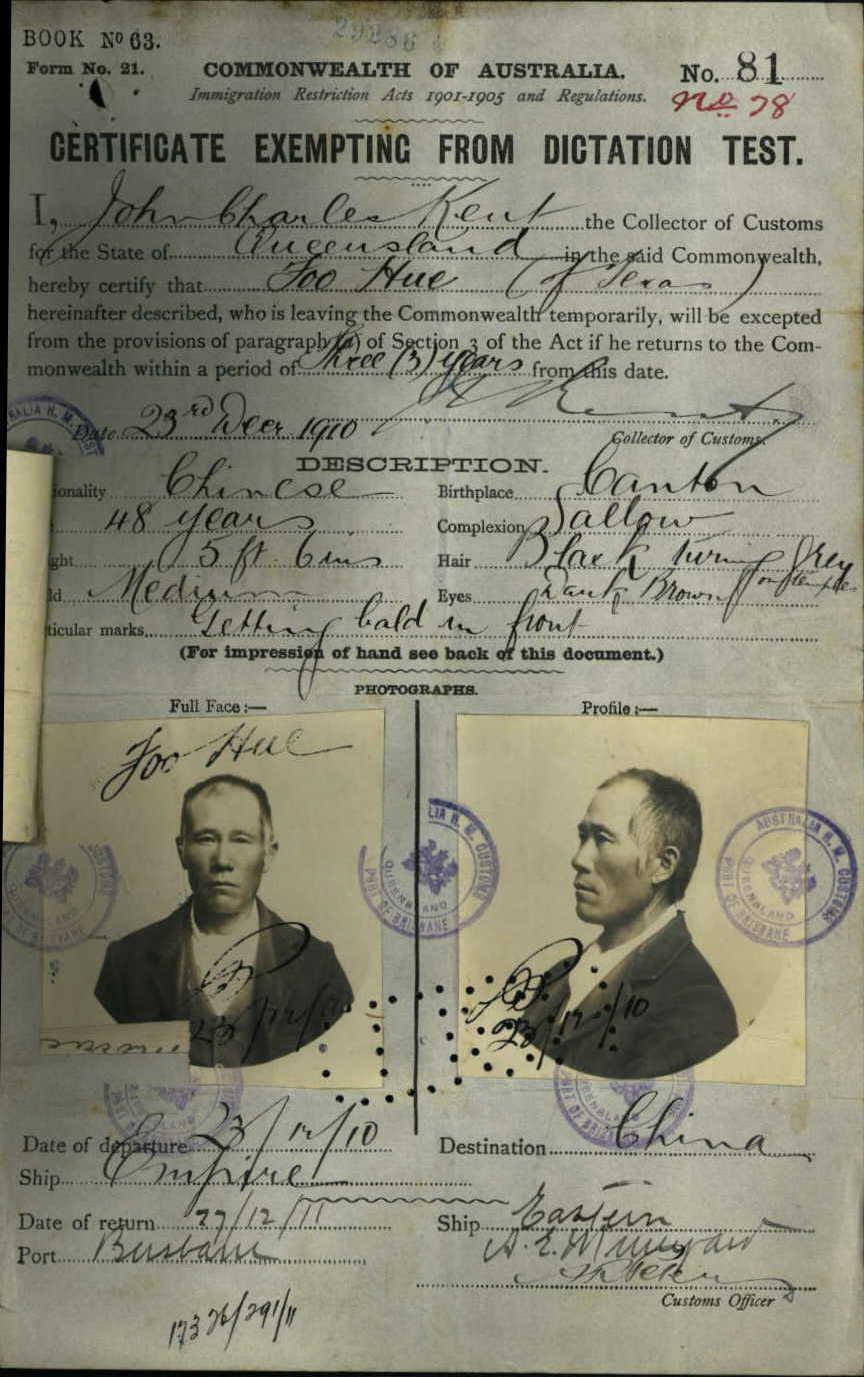 29236
BOOK Nº 63.
Form No. 21.
COMMONWEALTH OF AUSTRALIA.
No. 81
Immigration Restriction Acts 1901-1905 and Regulations.
No 78
CERTIFICATE EXEMPTING FROM DICTATION TEST.
I, John Charles Kent the Collector of Customs
for the State of Queensland in the said Commonwealth,
hereby certify that Foo Hue (of Texas)
hereinafter described, who is leaving the Commonwealth temporarily, will be excepted
from the provisions of paragraph (a) of Section 3 of the Act if he returns to the Com-
monwealth within a period of Three (3) years from this date.
Date 23rd Decr 1910
Collector of Customs.
DESCRIPTION.
ionality Chinese
Birthplace Canton
48 years
Complexion Sallow
ght 5 ft 6 ins
Hair Black turning Grey on temples
ld Medium
Eyes Dark Brown
ticular marks Getting bald in front
(For impression of hand see back of this document.)
PHOTOGRAPHS.
Full Face :—
Profile :—
Foo Hue
AUSTRALIA H. M. CUSTOMS
QUEENSLAND
PORT OF BRISBANE
23/12/10
23/12/10
Date of departure 23/12/10
Destination China
Ship Empire
Date of return 27/12/11
Ship Eastern
Port Brisbane
Customs Officer
1736/291/11